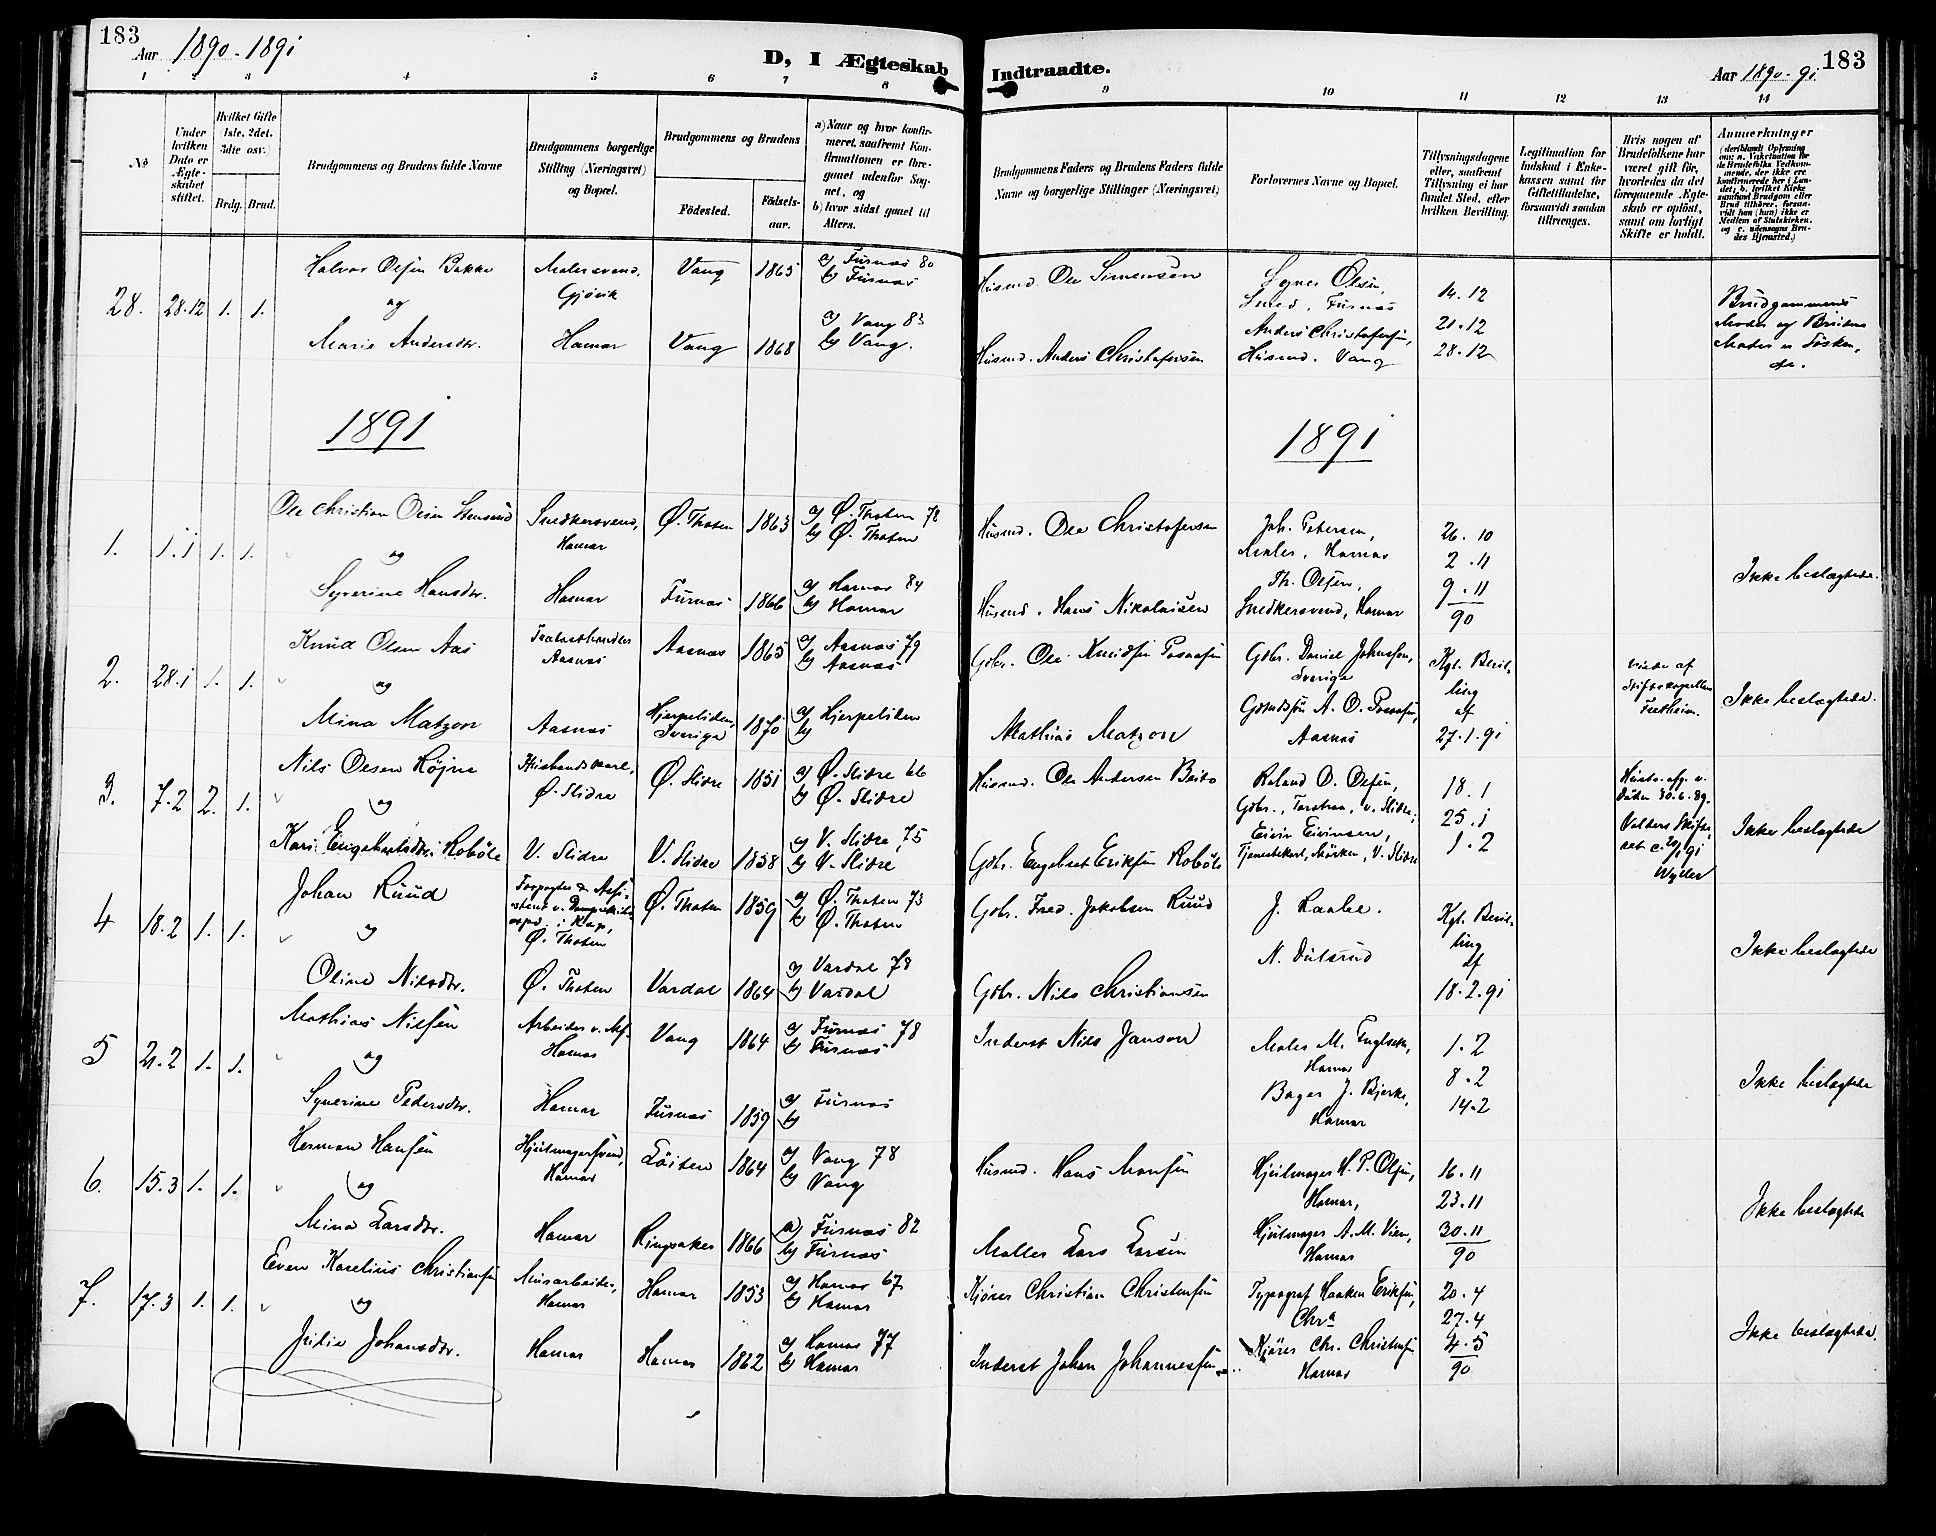 183
Aar 1890-1891
D, I Ægteskab
Indtraadte.
Aar 1890-91
183
1 2 3 4 5 6 7 8 9 10 11 12 13 14
No
Under hvilken Dato er Ægteskabet stiftet.
Hvilket Gifte (1ste, 2det, 3die osv.)
Brdg. Brud.
Brudgommens og Brudens fulde Navne
Brudgommens borgerlige Stilling (Næringsvei) og Bopæl.
Brudgommens og Brudens
Fødested.
Fødselsaar.
a) Naar og hvor konfirmeret, saafremt Konfirmationen er foregaaet udenfor Sognet, og
b) hvor sidst gaaet til Alters.
Brudgommens Faders og Brudens Faders fulde Navne og borgerlige Stillinger (Næringsvei)
Forlovernes Navne og Bopæl.
Tillysningsdagene eller, saafremt Tillysning ei har fundet Sted, efter hvilken Bevilling.
Legitimation for Indskud i Enkekassen samt for Giftetilladelse, forsaavidt saadan tiltrænges.
Hvis nogen af Brudefolkene har været gift før, hvorledes da det foregaaende Ægteskab er opløst, samt om lovligt Skifte er holdt.
Anmerkninger
28. 28.12 1. 1.
Halvor Olsen Bakke
og
Marie Andersdtr.
Malersvend, Gjøvik
Hamar
Vang 1865
Vang 1868
a) Furnæs 80
b) Furnæs
a) Vang 83
b) Vang.
Husmd. Ole Simensen
Husmd. Anders Christofersen
Olsen,
Smed, Furnæs
Anders Christofersen,
Husmd. Vang
14.12
21.12
28.12
Brudgommens Moder og Brudens Moder er Søskende.
1891
1891
1. 1.1 1. 1.
Ole Christian Olsen Stensrud
og
Syverine Hansdtr.
Snedkersvend, Hamar
Hamar
Ø. Thoten 1863
Furnæs 1866
a) Ø. Thoten 78
b) Ø. Thoten
a) Hamar 84
b) Hamar
Husmd. Ole Christofersen
Husmd. Hans Nikolaisen
Joh. Petersen,
Maler, Hamar
Th. Olsen,
Snedkersvend, Hamar
26.10
2.11
9.11
90
Ikke beslægtede.
2. 28.1 1. 1.
Knud Olsen Aas
og
Mina Matzon
Aasnæs
Aasnæs
Aasnæs 1865
Hjerpeliden, Sverige 1870
a) Aasnæs 79
b) Aasnæs
a) Hjerpeliden
b)
Gbr. Ole Knudsen Posaasen
Mathias Matzon
Gbr. Daniel Johnsson,
Sverige
A. O. Posaasen,
Aasnæs
Kgl. Bevilling
af
27.1.91
viede af Stiftskapellan
Ikke beslægtede.
3. 7.2 2. 1.
Nils Olsen Røjne
og
Kari Engebretsdtr. Robøle
Husbandskarl, Ø. Slidre
V. Slidre
Ø. Slidre 1851
V. Slidre 1858
a) Ø. Slidre 66
b) Ø. Slidre
a) V. Slidre 75
b) V. Slidre
Husmd. Ole Andersen Beito
Gbr. Engebret Eriksen Robøle
Roland O. Olsen,
Gbr., V. Slidre,
Eivin Eivinsen,
Tjenestekarl, Mørken, V. Slidre
18.1
25.1
1.2
30.6.89.
Valders
Ikke beslægtede
4 18.2 1. 1.
Johan Ruud
og
Oline Nilsdtr.
i Kap, Ø. Thoten
Ø. Thoten
Ø. Thoten 1859
Vardal 1864
a) Ø. Thoten 73
b) Ø. Thoten
a) Vardal 78
b) Vardal
Gbr. Fred. Jakobsen Ruud
Gbr. Nils Christiansen
J. Raabe.
N. Dulsrud
Kgl. Bevilling
af
18.2.91
Ikke beslægtede
5 21.2 1. 1.
Mathias Nilsen
og
Syverine Pedersdtr.
Arbeider Hamar
Hamar
Vang 1864
Furnæs 1859
a) Furnæs 78
b) Furnæs
a) Furnæs
b)
Inderst Nils Janson
Maler M. Englseth,
Hamar
Bager J. Bjerke,
Hamar
1.2
8.2
14.2
Ikke beslægtede
6. 15.3 1. 1.
Herman Hansen
og
Mina Larsdtr.
Hjulmagersvend, Hamar
Hamar
Løiten 1864
Ringsaker 1866
a) Vang 78
b) Vang
a) Furnæs 82
b) Furnæs
Husmd. Hans Hansen
Møller Lars Larsen
Hjulmager H. P. Olsen,
Hamar,
Hjulmager A. M. Vien,
Hamar
16.11
23.11
30.11
90
Ikke beslægtede
7. 17.3 1. 1.
Even Karelius Christiansen
og
Julie Johansdtr.
Murarbeider, Hamar
Hamar
Hamar 1853
Hamar 1862
a) Hamar 67
b) Hamar
a) Hamar 77
b) Hamar
Kjører Christian Christensen
Inderst Johan Johannessen
Typograf Haaken Eriksen,
Chra
Kjører Chr. Christensen
Hamar
20.4
27.4
4.5
90
Ikke beslægtede.